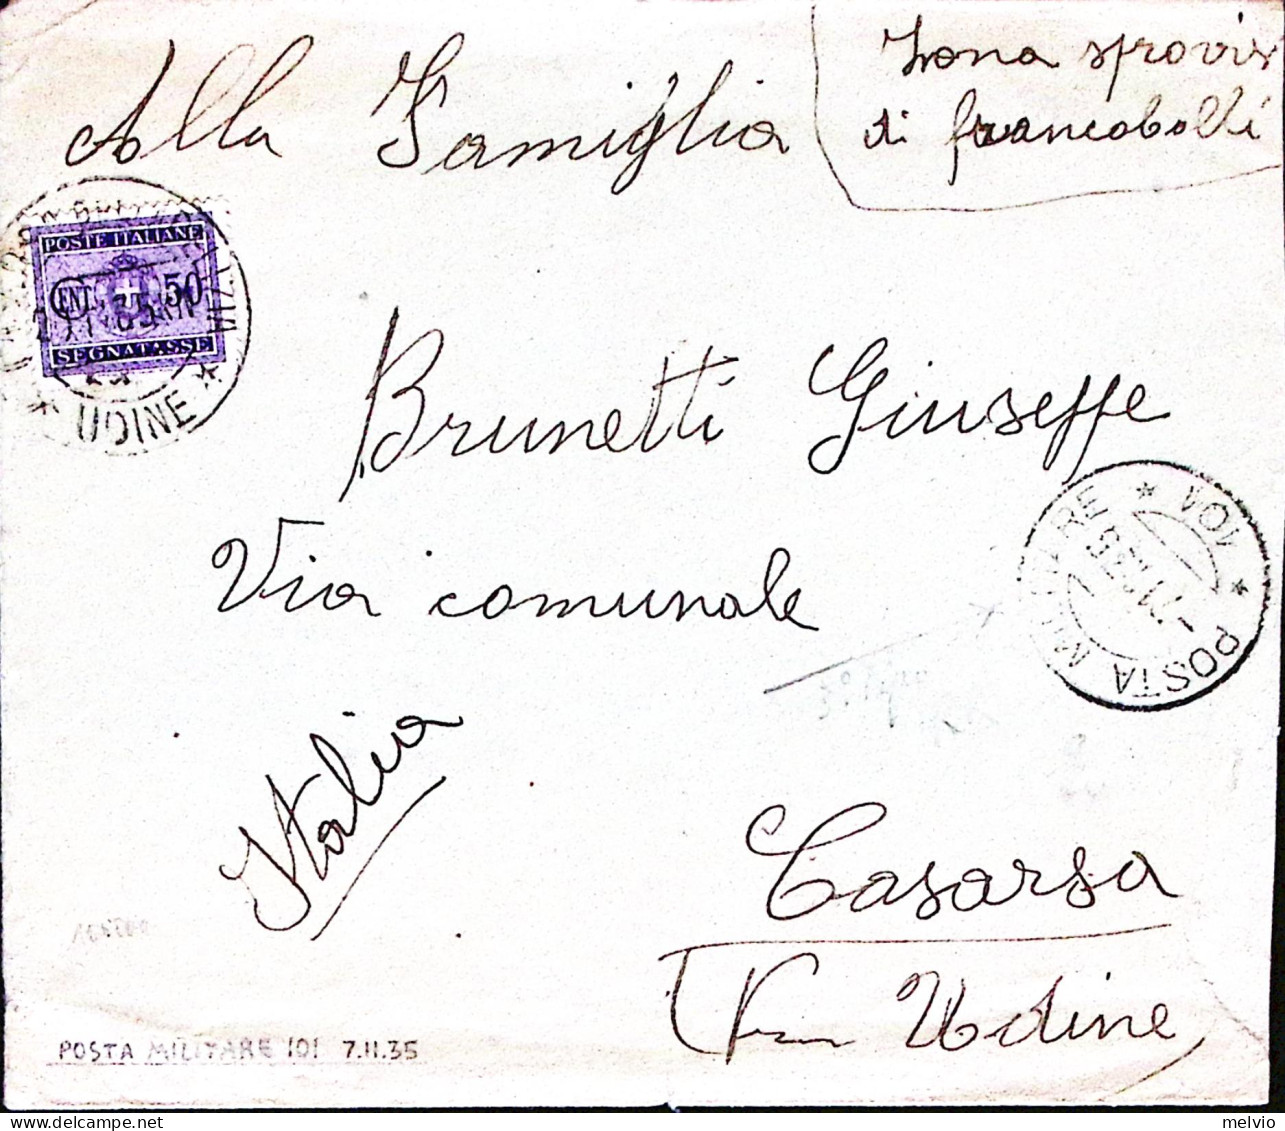 Zona sprovis
di francobolli
Alla Famiglia
POSTE ITALIANE
CENT. 50
SEGNATASSE
UDINE
Brunetti Giuseppe
POSTA MILITARE * 101 *
7 11 35
Via comunale
Italia
Casarsa
Udine
POSTA MILITARE 101 7.11.35
melvio